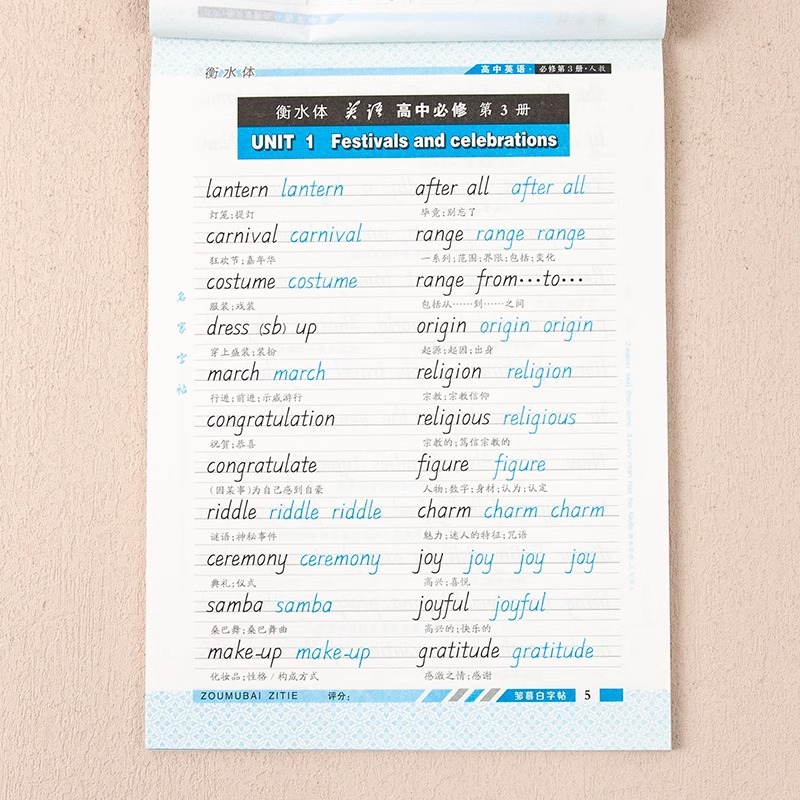 衡水体
高中英语·必修第3册·人教
衡水体 英语 高中必修 第3册
UNIT 1 Festivals and celebrations
lantern lantern
灯笼;提灯
carnival carnival
狂欢节;嘉年华
costume costume
服装;戏装
dress (sb) up
穿上盛装;装扮
march march
行进;前进;示威游行
congratulation
祝贺;恭喜
congratulate
(因某事)为自己感到自豪
riddle riddle riddle
谜语;神秘事件
ceremony ceremony
典礼;仪式
samba samba
桑巴舞;桑巴舞曲
make-up make-up
化妆品;性格/构成方式
after all after all
毕竟;别忘了
range range range
一系列;范围;界限;包括;变化
range from···to···
包括从······到······之间
origin origin origin
起源;起因;出身
religion religion
宗教;宗教信仰
religious religious
宗教的;笃信宗教的
figure figure
人物;数字;身材;认为;认定
charm charm charm
魅力;迷人的特征;咒语
joy joy joy joy
高兴;喜悦
joyful joyful
高兴的;快乐的
gratitude gratitude
感激之情;感谢
名家字帖
ZOUMUBAI ZITIE 评分:
邹慕白字帖 5